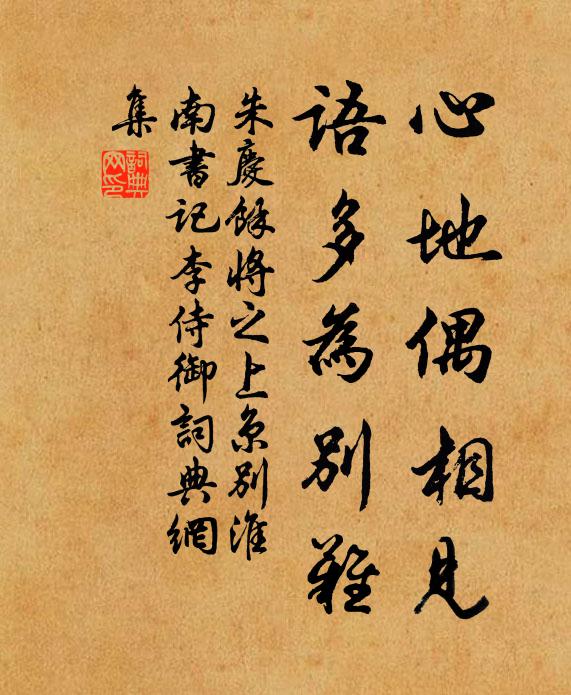 心地偶相見
語多為別難
朱慶餘將之上京別淮
南書記李侍御詞典網
集
詞典
网印